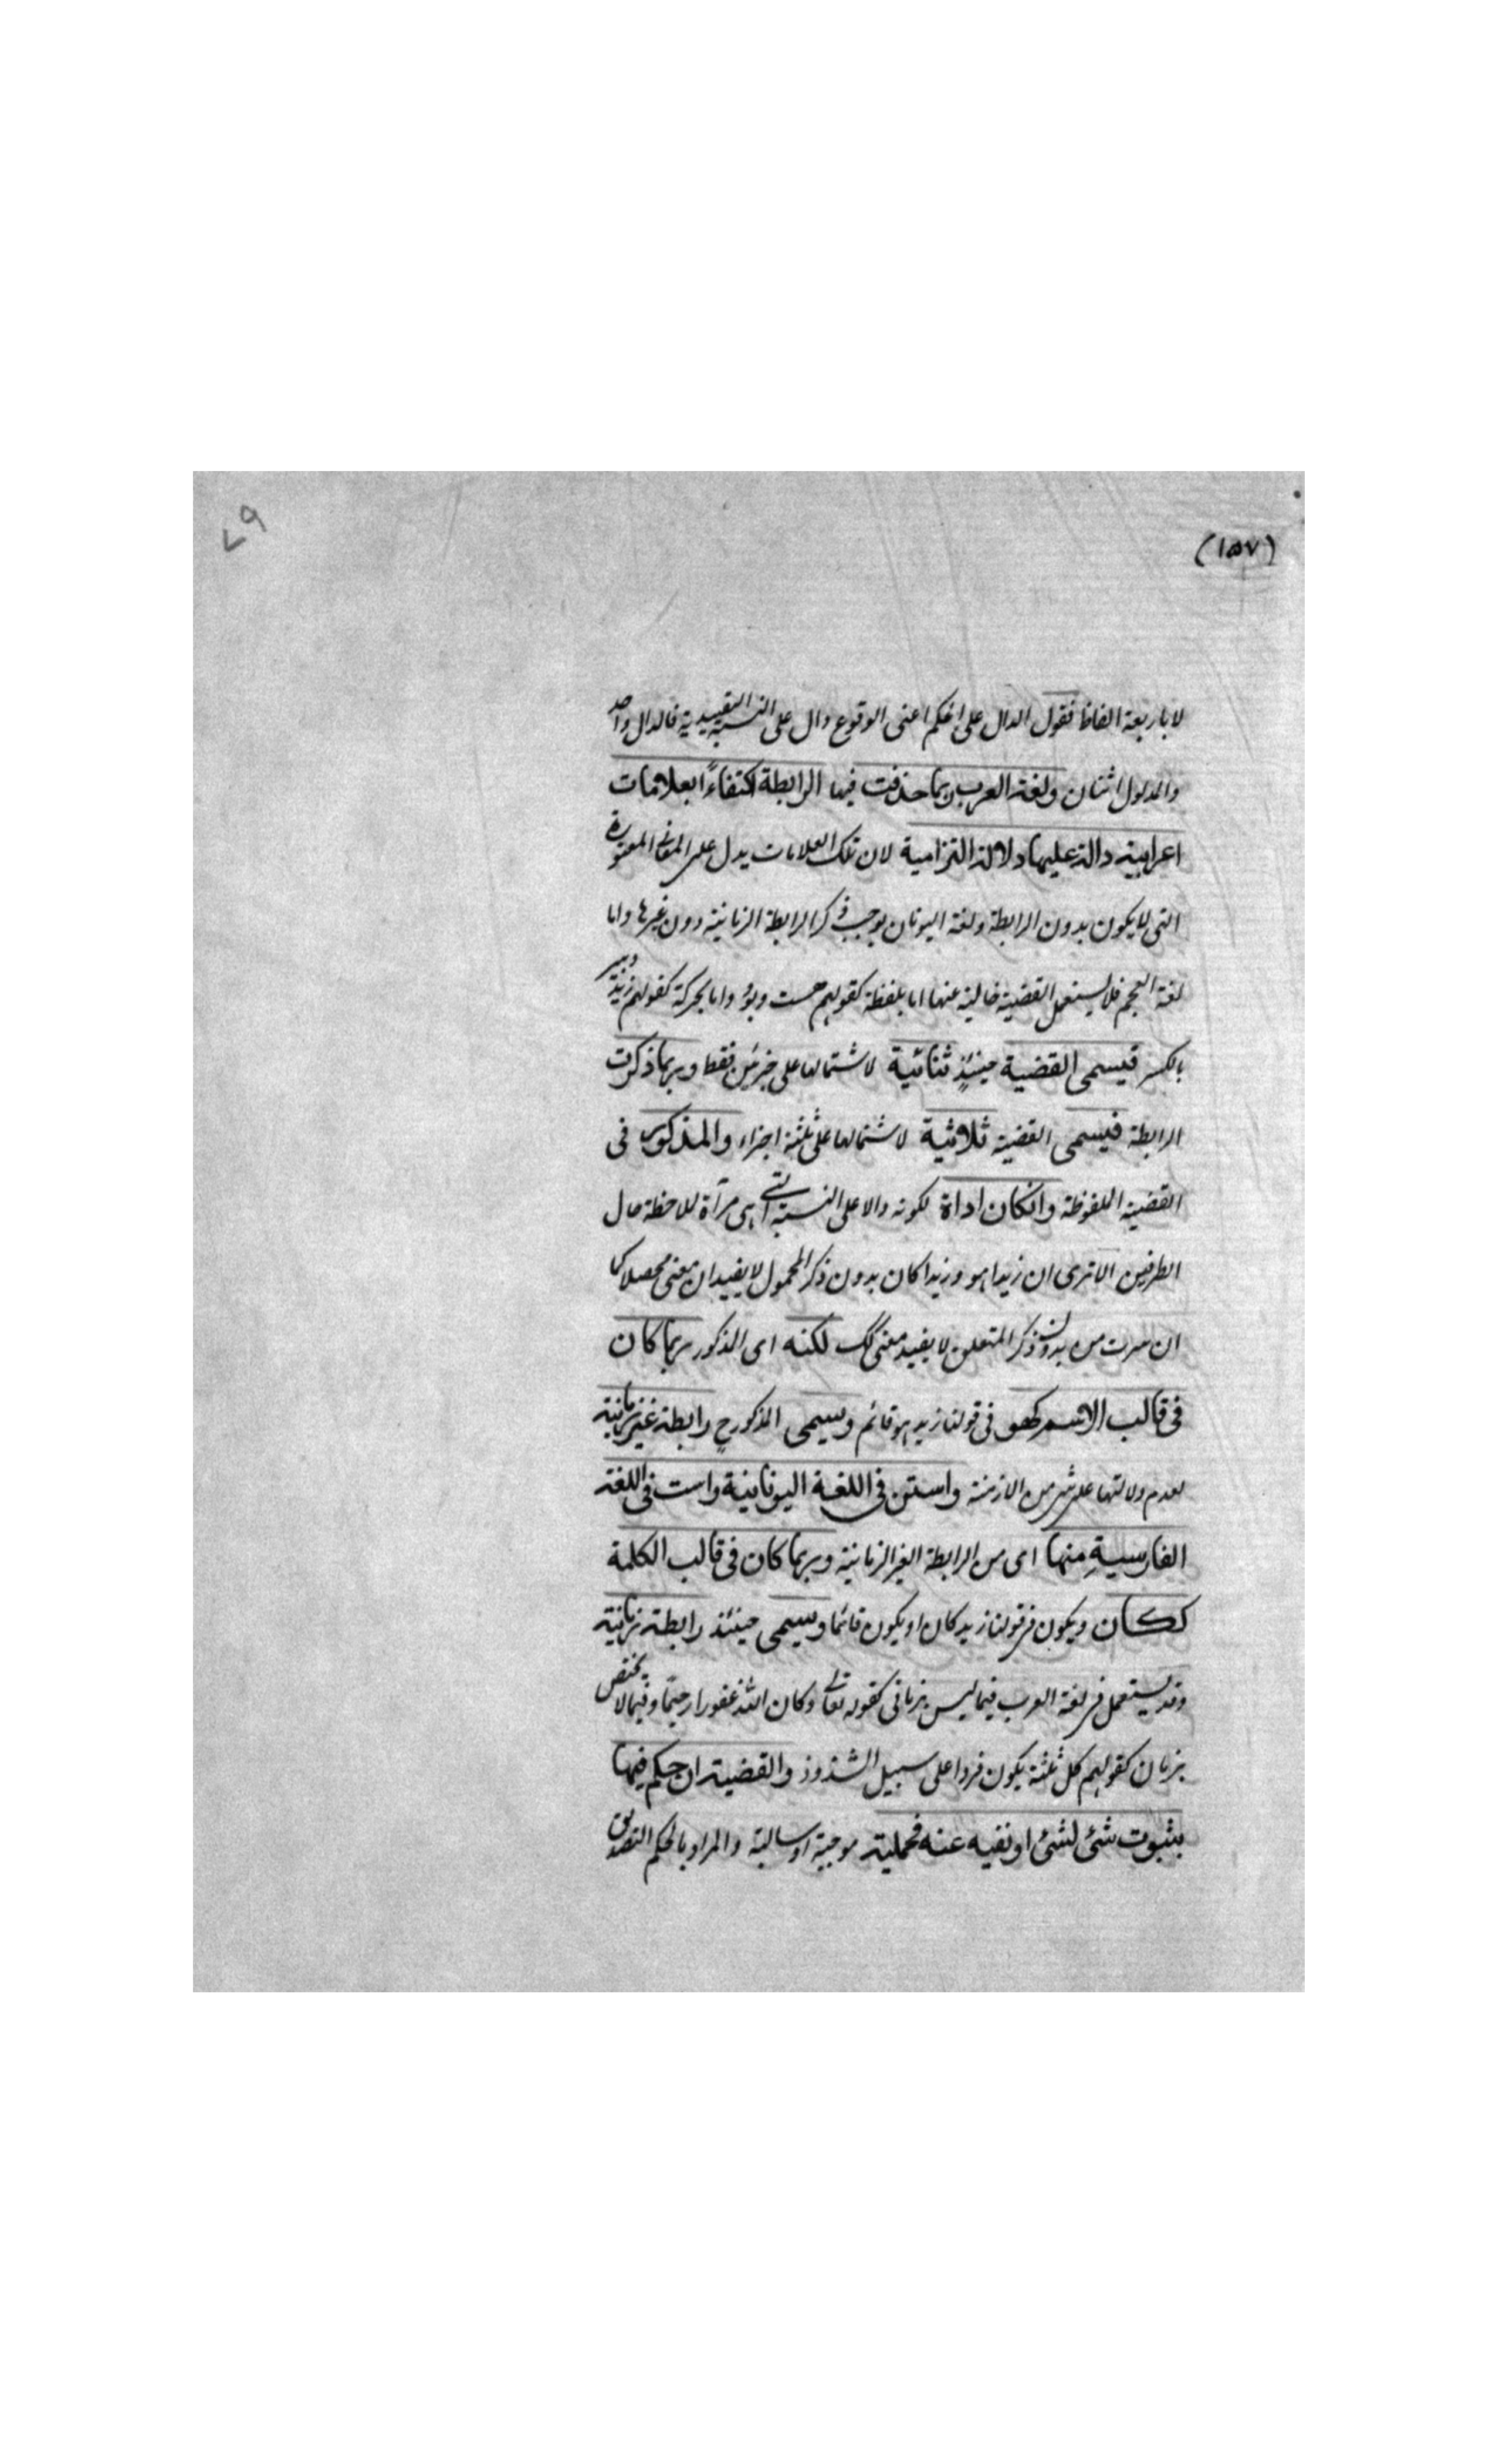 ٧٩
(١٥٧)
لا باربعة الفاظ فنقول الدال على الحكم اعنى الوقوع دال على النسبة التقييدية فالدال واحد
والمدلول اثنان ولغة العرب ربما حذفت فيها الرابطة اكتفاءً ابعلامات
اعرابية دالة عليها دلالة التزامية لان تلك العلامات يدل على المعانى المعتورة
التى لا يكون بدون الرابطة ولغة اليونان يوجب ذكر الرابطة الزمانية دون غيرها واما
لغة العجم فلا يستعمل القضية خالية عنها اما بلفظة كقولهم هست وبود واما بحركة كقولهم زيد دبير
بالكسر فيسمى القضية حينئذٍ ثنائية لاشتمالها على جزئين فقط وربما ذكرت
الرابطة فيسمى القضية ثلاثية لاشتمالها على ثلثة اجزاء والمذكور فى
القضية الملفوظة وانكان اداة لكونه دالا على النسبة التى هى مرآة لملاحظة حال
الطرفين الا ترى ان زيدا هو وزيدا كان بدون ذكر المحمول لا يفيدان معنى محصلا كما
ان سرت من بدون ذكر المتعلق لا يفيد معنى كك لكنه اى المذكور ربما كان
فى قالب الاسم كهو فى قولنا زيد هو قائم ويسمى المذكور ح رابطة غير زمانية
لعدم دلالتها على شئ من الازمنة واستن فى اللغة اليونانية واست فى اللغة
الفارسيةِ منها اى من الرابطة الغير الزمانية وربما كان فى قالب الكلمة
ككان ويكون فى قولنا زيد كان او يكون قائما ويسمى حينئذ رابطة زمانية
وقد يستعمل فى لغة العرب فيما ليس بزمانى كقوله تعالى وكان الله غفورا رحيمًا وفيما لا يختص
بزمان كقولهم كل ثلثة يكون فردا على سبيل الشذوذ والقضية ان حكم فيها
بثبوت شئ لشئ او نفيه عنه فحملية موجبة او سالبة والمراد بالحكم التصديق